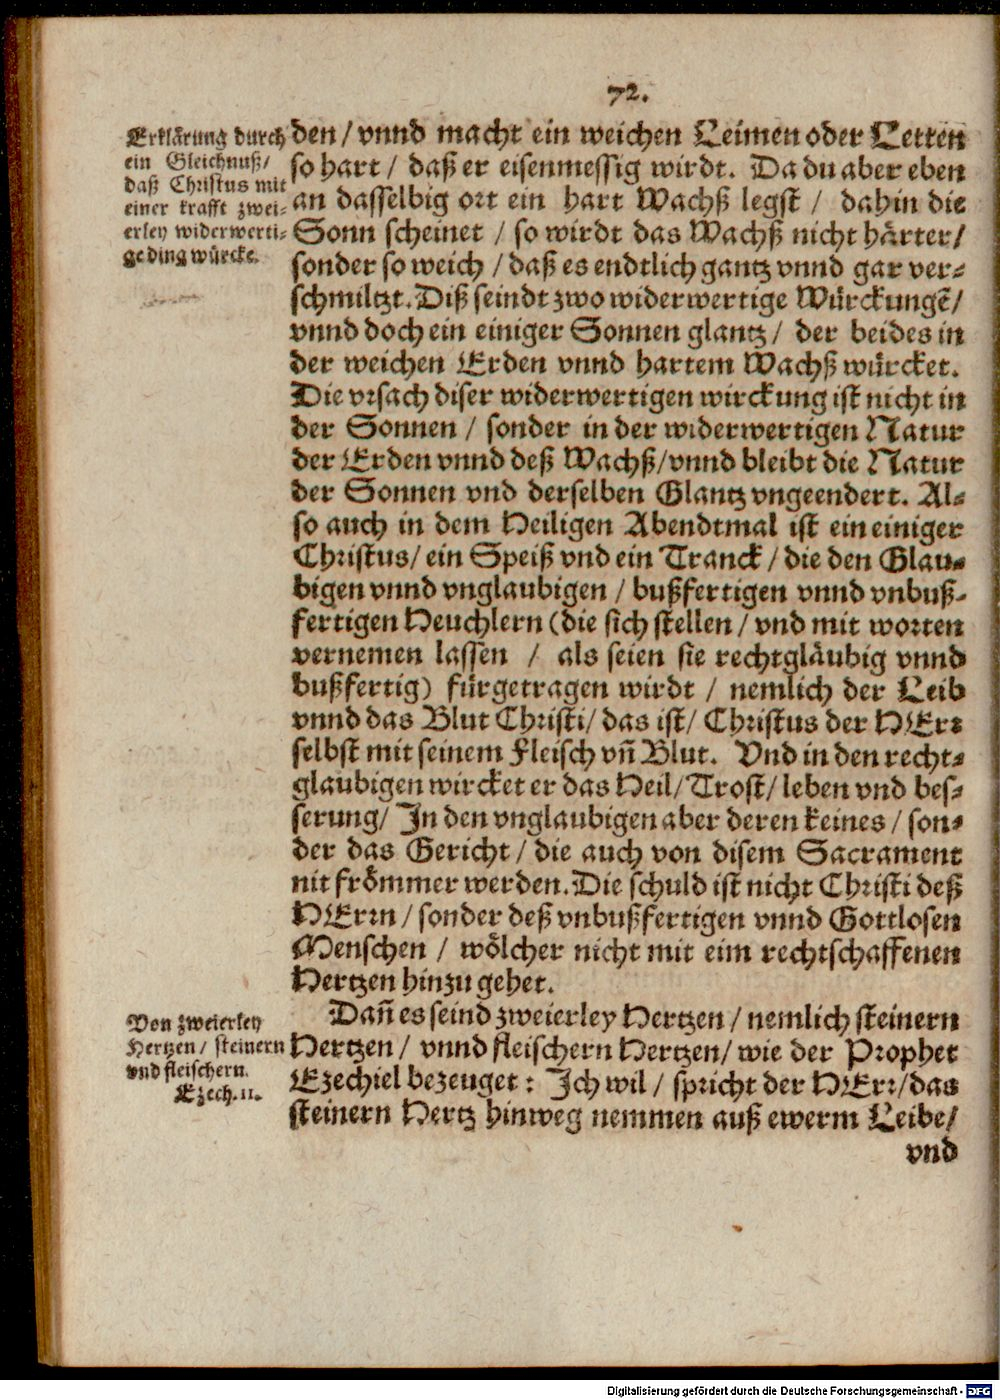 72.
Erklärung durch
ein Gleichnuß/
daß Christus mit
einer krafft zwei-
erley widerwerti-
ge ding würcke.
den / vnnd macht ein weichen Leimen oder Letten
so hart / daß er eisenmessig wirdt. Da du aber eben
an dasselbig ort ein hart Wachß legst / dahin die
Sonn scheinet / so wirdt das Wachß nicht härter/
sonder so weich / daß es endtlich gantz vnnd gar ver-
schmiltzt. Diß seindt zwo widerwertige Würckungẽ/
vnnd doch ein einiger Sonnen glantz / der beides in
der weichen Erden vnnd hartem Wachß würcket.
Die vrsach diser widerwertigen wirckung ist nicht in
der Sonnen / sonder in der widerwertigen Natur
der Erden vnnd deß Wachß/vnnd bleibt die Natur
der Sonnen vnd derselben Glantz vngeendert. Al-
so auch in dem Heiligen Abendtmal ist ein einiger
Christus/ ein Speiß vnd ein Tranck / die den Glau-
bigen vnnd vnglaubigen / bußfertigen vnnd vnbuß-
fertigen Heuchlern (die sich stellen / vnd mit worten
vernemen lassen / als seien sie rechtgläubig vnnd
bußfertig) fürgetragen wirdt / nemlich der Leib
vnnd das Blut Christi/ das ist/ Christus der HErr
selbst mit seinem Fleisch vñ Blut. Vnd in den recht-
glaubigen wircket er das Heil/ Trost/ leben vnd bes-
serung/ In den vnglaubigen aber deren keines / son-
der das Gericht / die auch von disem Sacrament
nit frömmer werden. Die schuld ist nicht Christi deß
HErrn / sonder deß vnbußfertigen vnnd Gottlosen
Menschen / wölcher nicht mit eim rechtschaffenen
Hertzen hinzu gehet.
Von zweierley
Hertzen / steinern
vnd fleischern.
Ezech. 11.
Dañ es seind zweierley Hertzen / nemlich steinern
Hertzen / vnnd fleischern Hertzen/ wie der Prophet
Ezechiel bezeuget : Ich wil / spricht der HErr/das
steinern Hertz hinweg nemmen auß ewerm Leibe/
vnd
Digitalisierung gefördert durch die Deutsche Forschungsgemeinschaft - DFG